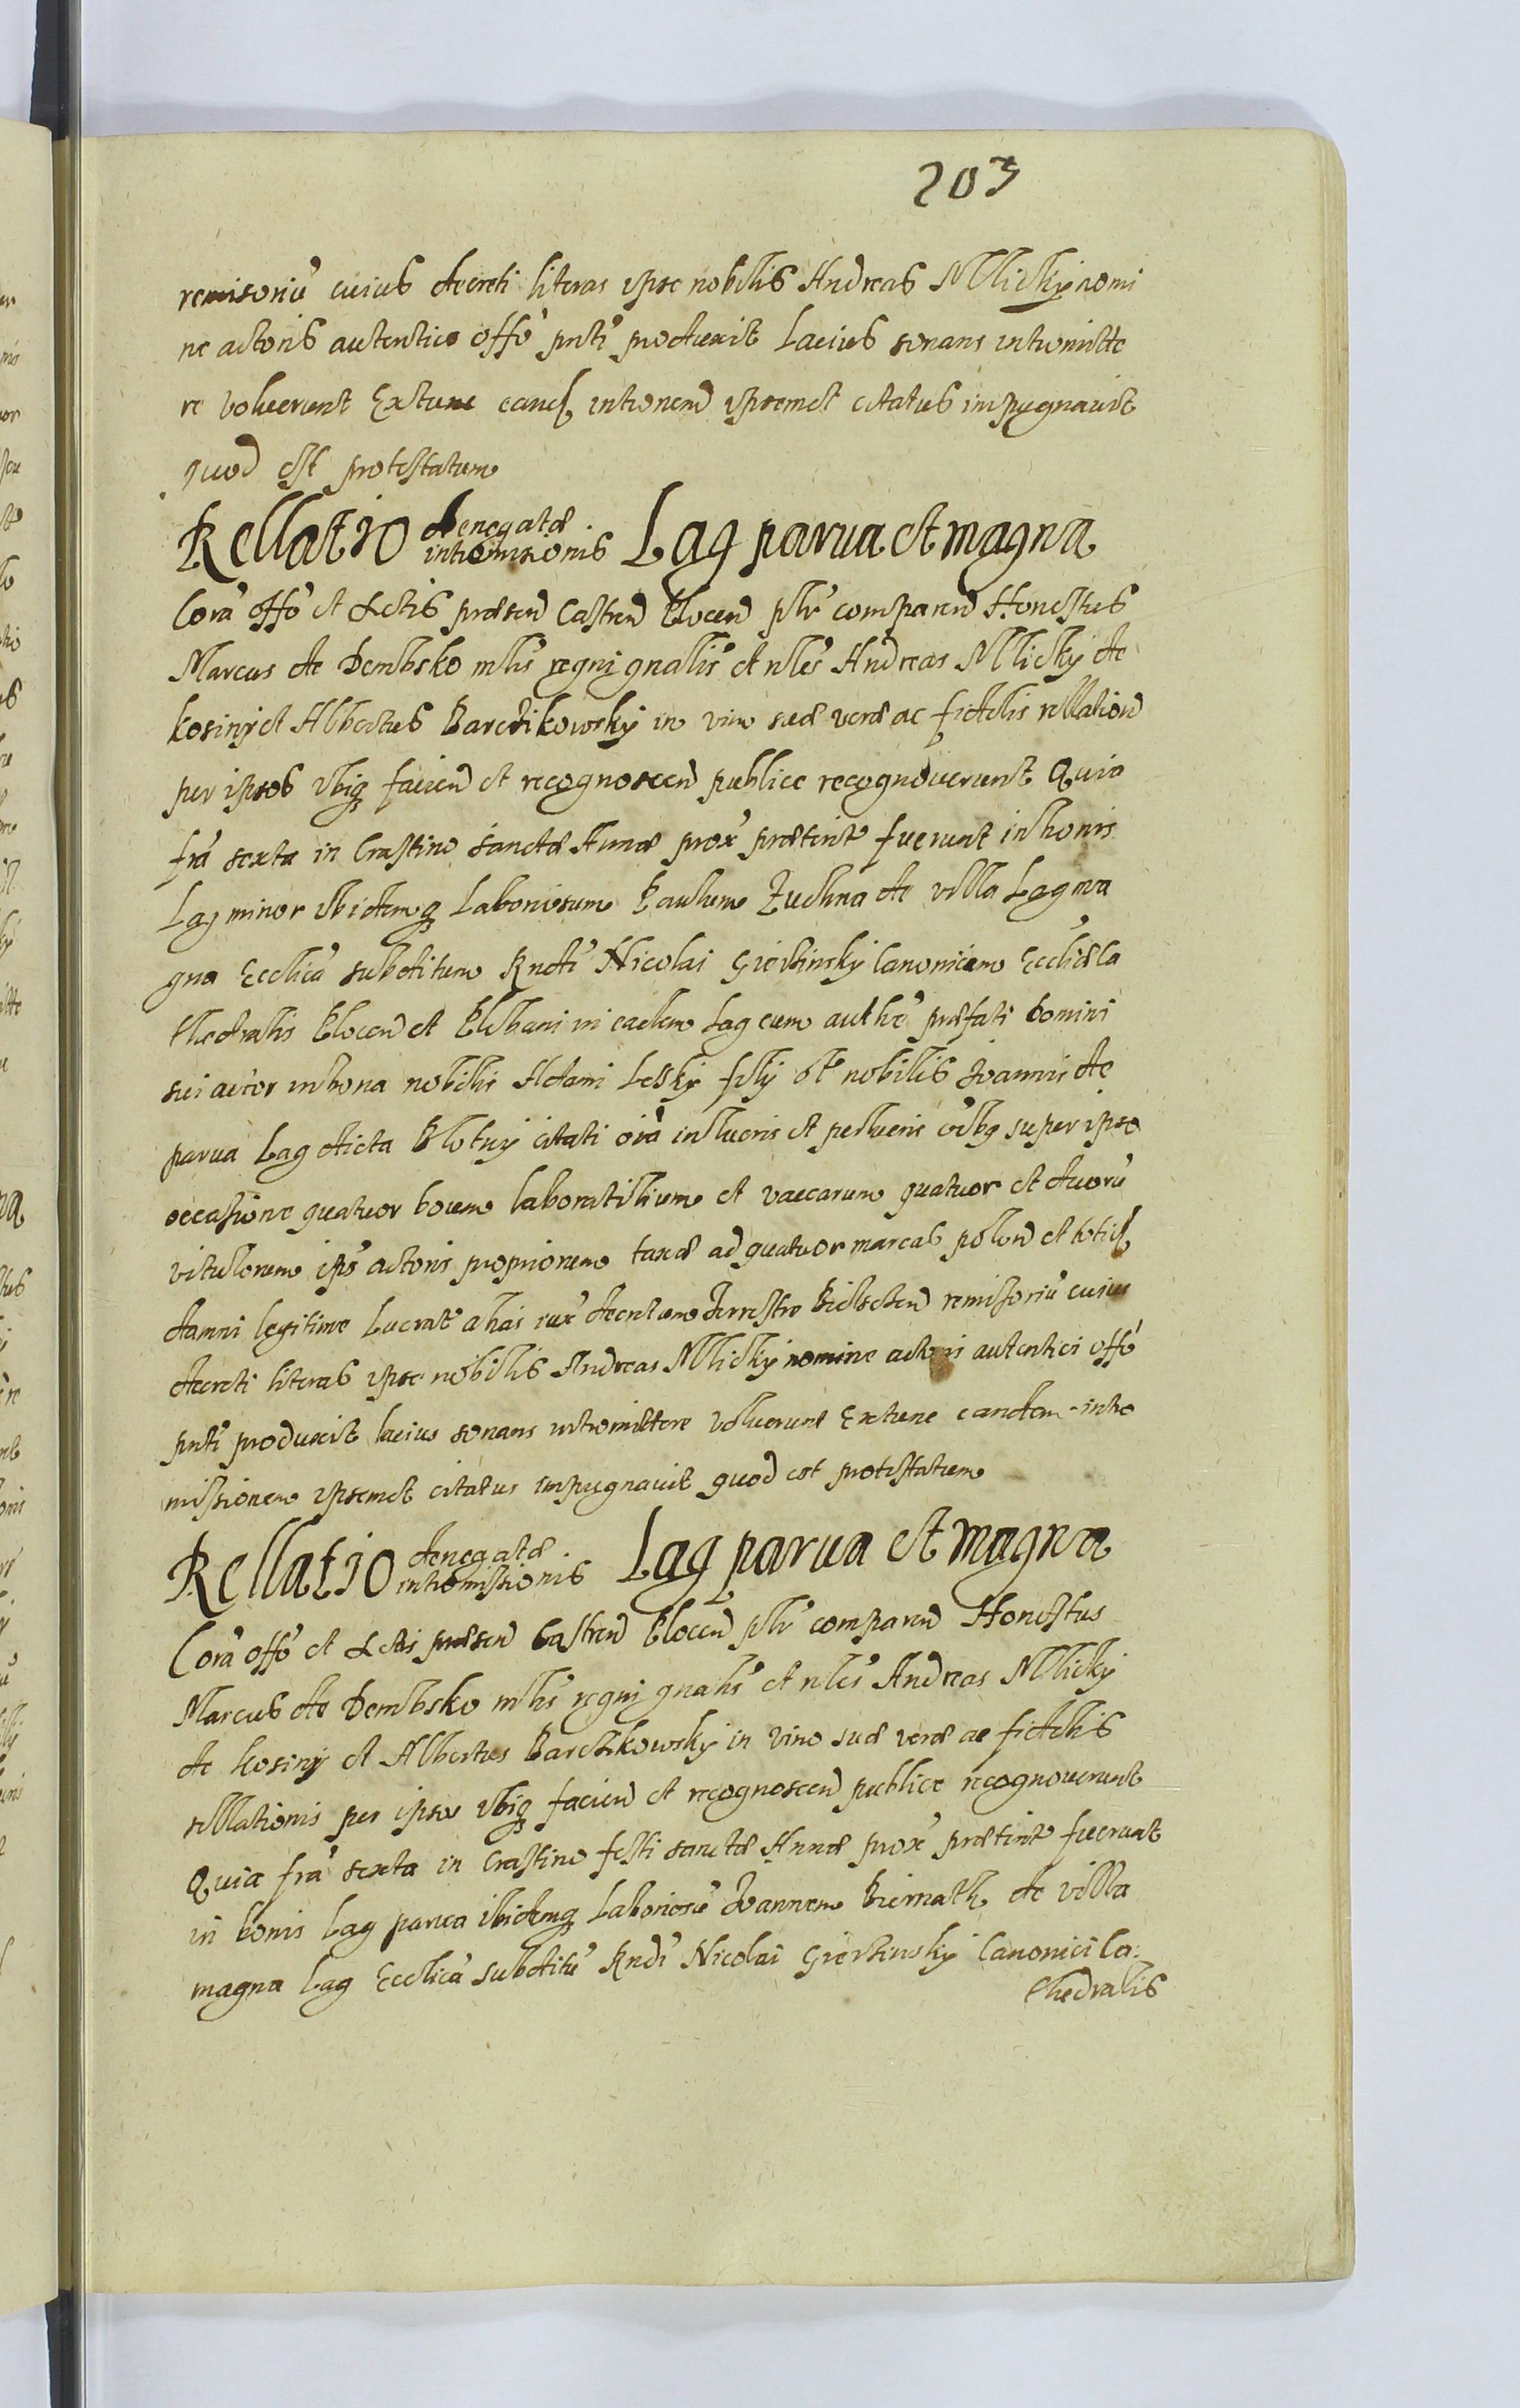 203
remisoriu cuius decreti literas ipse nobilis Andreas Mlicky nomi
ne actoris autentice offo pnti produxit Lacius sonans intromitte
re voluerunt Extunc eand intionem ipsemet citatus impugnavit
quod est protestatum
Rellatio denegatæ intromisionis Lag parua et magna
Cora offo et Actis præsen Castren Plocen plr comparen Honestus
Marcus de Dembsko mlis regni gnalis et nles Andreas Mlicky de
kosiny et Albertus Barczikowsky in vim suæ veræ ac fidelis rellation
per ipsos vbiq facien et recognoscen publice recognouerunt Quia
fra sexta in Crastino Sanctæ Annæ prox præterit fuerunt in bonis
Lag minor ibidemq Laboriosum Paulum de villa Lag ma
gna Ecclica subditum Rndi Nicolai Canonicum Ecclæ Ca
thedralis Plocen et Plebani in eadem Lag cum autho præfati Domini
sui actor in bona nobilis Adami Lessky filÿ ol nobilis Joannis de
parua Lag dicta citati oia super ipso
occasione quatuor boum laboratilium et vaccarum quatuor et duoru
vitulorum ips actoris propriorum taxæ ad quatuor marcas polon et totid
damni legitime Lucrat a has iux decretum Terrestre Bielscen remisoriu cuius
decreti literas ipse nobilis Andreas Mlicky nomine actoris autentici offo
pnti produxit lacius sonans intromittere voluerunt Extunc eandem intro
missionem ipsemet citatus impugnavit quod est protestatum
Rellatio denegatæ intromissionis Lag parua et magna
Cora offo et Actis præsen Castren Plocen plr comparen Honestus
Marcus de Dembsko mlis regni gnalis et nles Andreas Mlicky
de kosiny et Albertus Barczikowsky in vim suæ veræ ac fidelis
rellationis per ipsos vbiq facien et recognoscen publice recognouerunt
Quia fra sexta in Crastino festi sanctæ Annæ prox præterit fuerunt
in bonis Lag parua ibidemq Laboriosu Joannem Biernath de villa
magna Lag Ecclica subditu Rndi Nicolai Canonici Ca:
thedralis